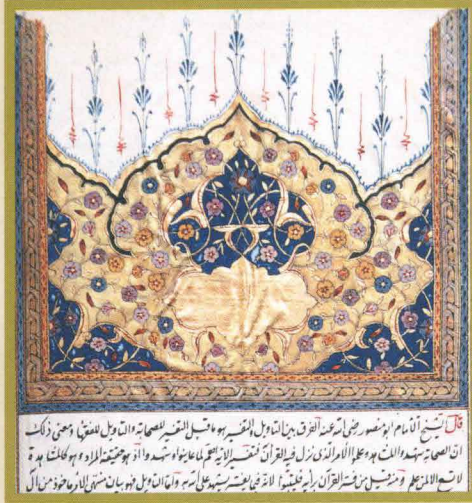 قال الشيخ الامام ابو منصور رضى الله عنه الفرق بين التأويل والتفسير هو ما قيل التفسير للصحابة والتأويل للفقهاء ومعنى ذلك
ان الصحابة شهدوا المشاهد وعلموا الامر الذى نزل فيه القرآن فتفسير الاية لما عاينوا وشهدوا اذ هو حقيقة المراد وهو كالمشاهدة
لا تسمح الا لمن علم ومنه قيل من فسر القرآن برأيه فليتبوأ لانه فيما يفسر يشهد على الله به واما التأويل فهو بيان منتهى الامر مأخوذ من آل